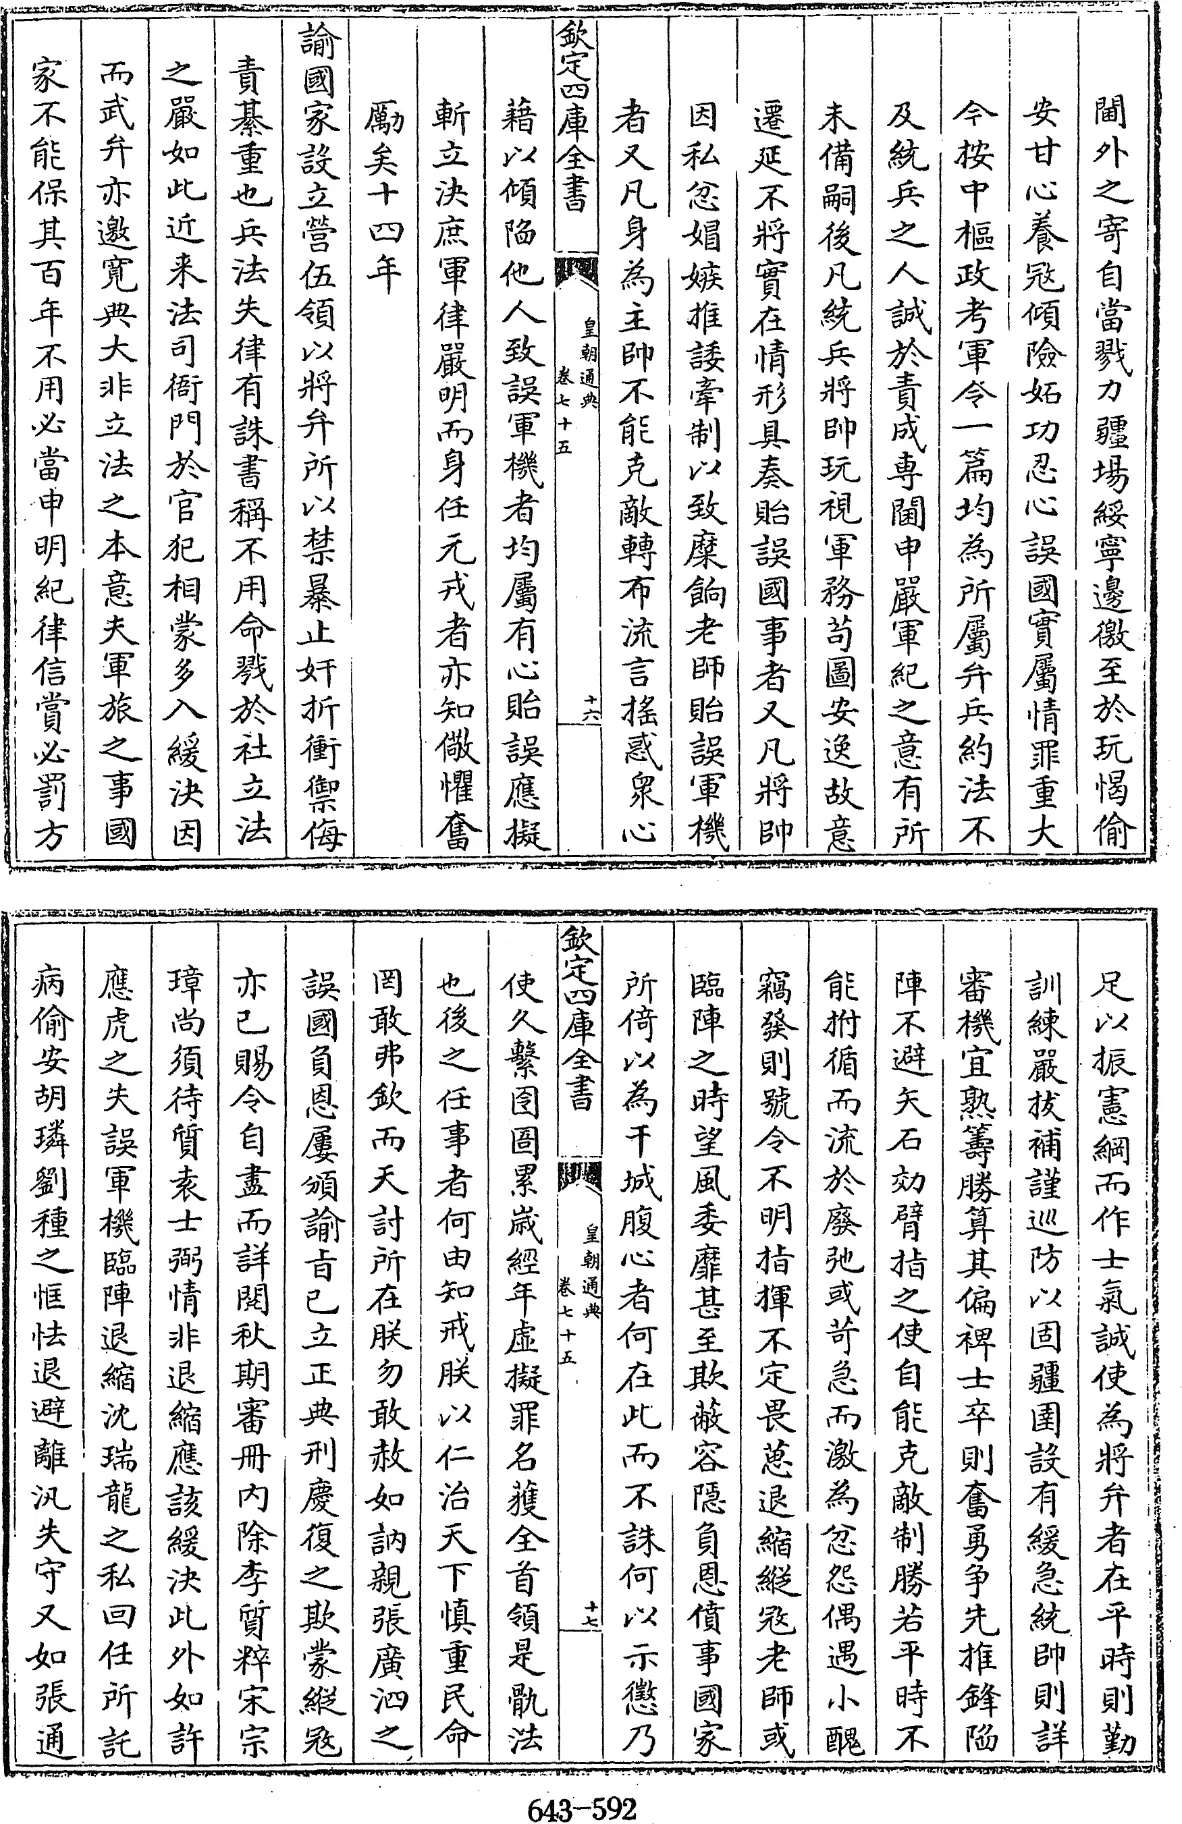 閫外之寄自當戮力疆場綏寧邊徼至於玩愒偷
安甘心養冦傾險妬功忍心誤國實屬情罪重大
今按中樞政考軍令一篇均為所屬弁兵約法不
及統兵之人誠於責成専閫申嚴軍紀之意有所
未備嗣後凡統兵將帥玩視軍務茍圖安逸故意
遷延不將實在情形具奏貽誤國事者又凡將帥
因私忿媢嫉推諉牽制以致糜餉老師貽誤軍機
者又凡身為主帥不能克敵轉布流言搖惑衆心
欽定四庫全書
皇朝通典
卷七十五
十六
藉以傾陷他人致誤軍機者均屬有心貽誤應擬
斬立決庶軍律嚴明而身任元戎者亦知儆懼奮
勵矣十四年
諭國家設立營伍領以將弁所以禁暴止奸折衝禦侮
責綦重也兵法失律有誅書稱不用命戮於社立法
之嚴如此近来法司衙門於官犯相蒙多入緩決因
而武弁亦邀寛典大非立法之本意夫軍旅之事國
家不能保其百年不用必當申明紀律信賞必罰方
足以振憲綱而作士氣誠使為將弁者在平時則勤
訓練嚴拔補謹巡防以固疆圉設有緩急統帥則詳
審機宜熟籌勝算其偏裨士卒則奮勇争先推鋒陷
陣不避矢石効臂指之使自能克敵制勝若平時不
能拊循而流於廢弛或苛急而激為忿怨偶遇小醜
竊發則號令不明指揮不定畏葸退縮縱冦老師或
臨陣之時望風委靡甚至欺蔽容隱負恩僨事國家
所倚以為干城腹心者何在此而不誅何以示懲乃
欽定四庫全書
皇朝通典
卷七十五
十七
使久繫囹圄累嵗經年虚擬罪名獲全首領是骩法
也後之任事者何由知戒朕以仁治天下慎重民命
罔敢弗欽而天討所在朕勿敢赦如訥親張廣泗之
誤國負恩屢頒諭旨已立正典刑慶復之欺蒙縱冦
亦已賜令自盡而詳閱秋期審冊内除李質粹宋宗
璋尚須待質袁士弼情非退縮應該緩決此外如許
應虎之失誤軍機臨陣退縮沈瑞龍之私回任所託
病偷安胡璘劉種之恇怯退避離汛失守又如張通
643-592